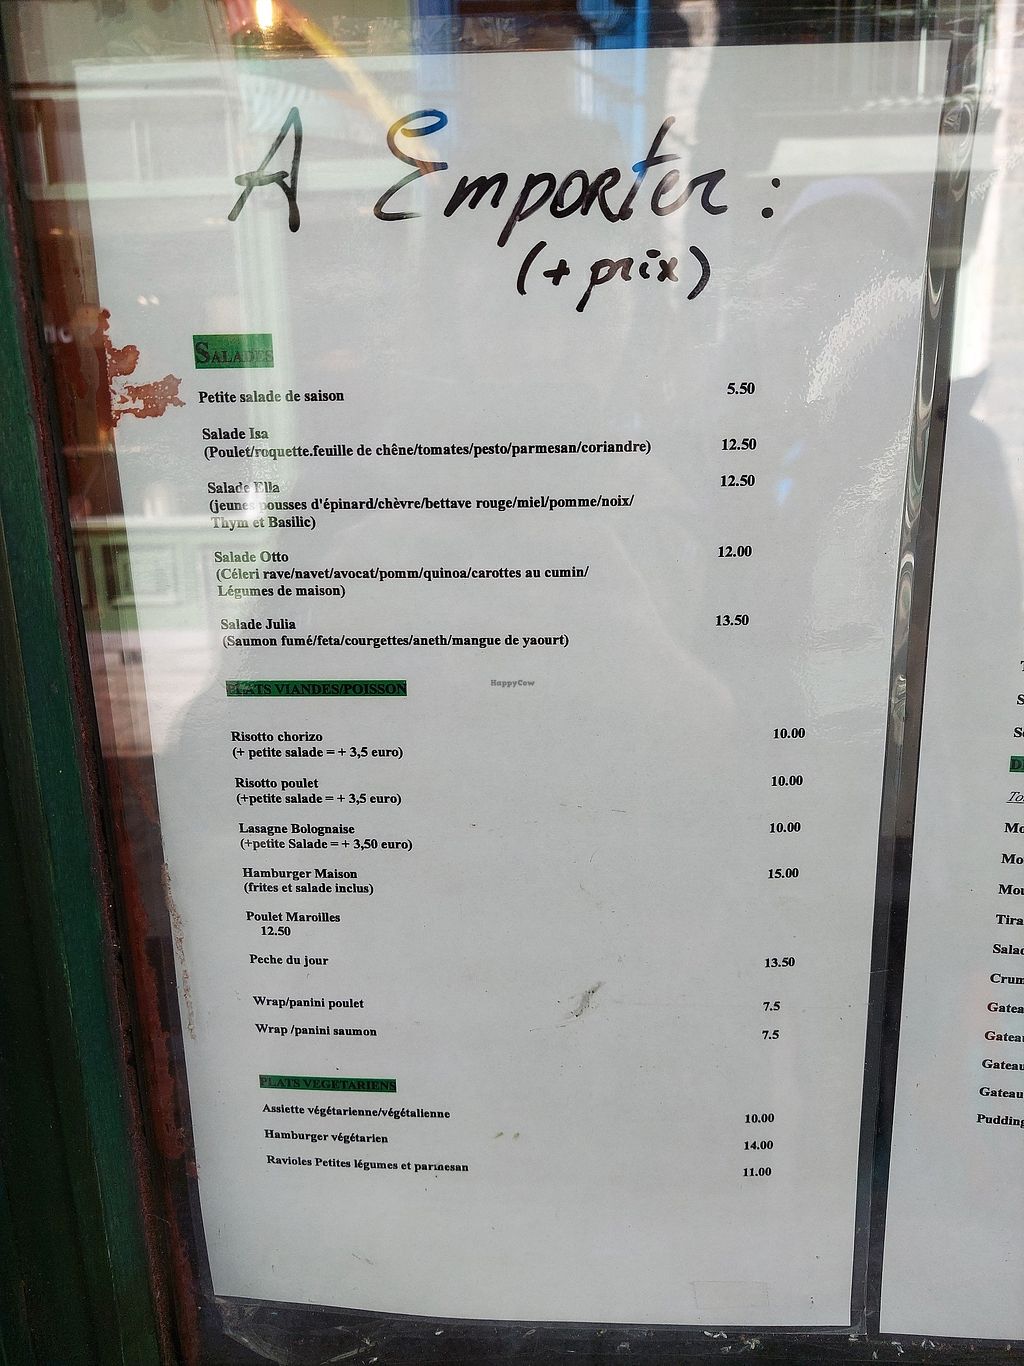 A Emporter :
(+ prix)
SALADES
Petite salade de saison 5.50
Salade Isa
(Poulet/roquette.feuille de chêne/tomates/pesto/parmesan/coriandre) 12.50
Salade Ella 12.50
(jeunes pousses d'épinard/chèvre/bettave rouge/miel/pomme/noix/
Thym et Basilic)
Salade Otto 12.00
(Céleri rave/navet/avocat/pomm/quinoa/carottes au cumin/
Légumes de maison)
Salade Julia 13.50
(Saumon fumé/feta/courgettes/aneth/mangue de yaourt)
PLATS VIANDES/POISSON
HappyCow
Risotto chorizo 10.00
(+ petite salade = + 3,5 euro)
Risotto poulet 10.00
(+petite salade = + 3,5 euro)
Lasagne Bolognaise 10.00
(+petite Salade = + 3,50 euro)
Hamburger Maison 15.00
(frites et salade inclus)
Poulet Maroilles
12.50
Peche du jour 13.50
Wrap/panini poulet 7.5
Wrap /panini saumon 7.5
PLATS VEGETARIENS
Assiette végétarienne/végétalienne 10.00
Hamburger végétarien 14.00
Ravioles Petites légumes et parmesan 11.00
Tira
Salad
Crum
Gatea
Gateau
Gateau
Gateau
Pudding